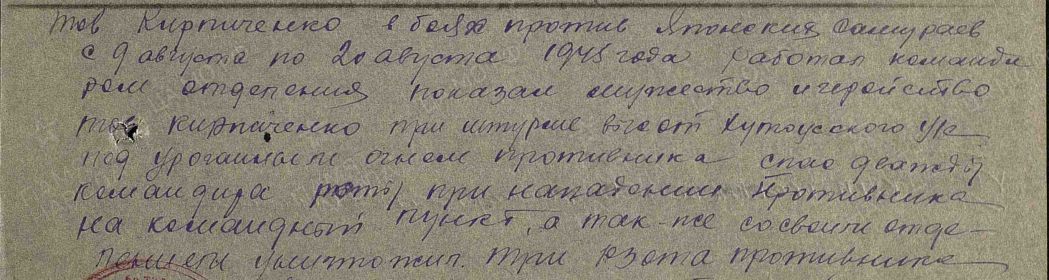 тов Кирпиченко в боях против Японских самураев
с 9 августа по 20 августа 1945 года работал команди
ром отделения показал мужество и геройство
тов Кирпиченко при штурме высот Хутоусского Ур
под ураганным огнем противника спас дважды
командира роты при нападении противника
на командный пункт, а так-же со своим отде-
лением уничтожил три дзота противника